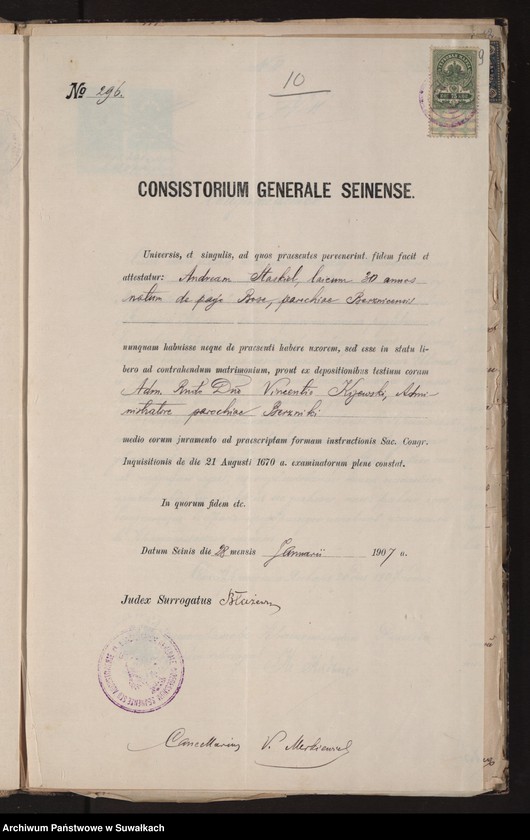 № 296.
10
9
CONSISTORIUM GENERALE SEINENSE.
Universis, et singulis, ad quos praesentes pervenerint fidem facit et
attestatur: Andream Staskel, laicum 30 annos
natum de pago Bose, parochiae Bereznicensis
nunquam habuisse neque de praesenti habere uxorem, sed esse in statu li-
bero ad contrahendum matrimonium, prout ex depositionibus testium coram
Adm. Rndo Dno Vincentio Kijewski, Admi-
nistratore parochiae Berzniki
medio eorum juramento ad praescriptam formam instructionis Sac. Congr.
Inquisitionis de die 21 Augusti 1670 a. examinatorum plene constat.
In quorum fidem etc.
Datum Seinis die 28 mensis Januarii 1907 a.
Judex Surrogatus
Cancellarius V. Merkiewicz
Archiwum Państwowe w Suwałkach